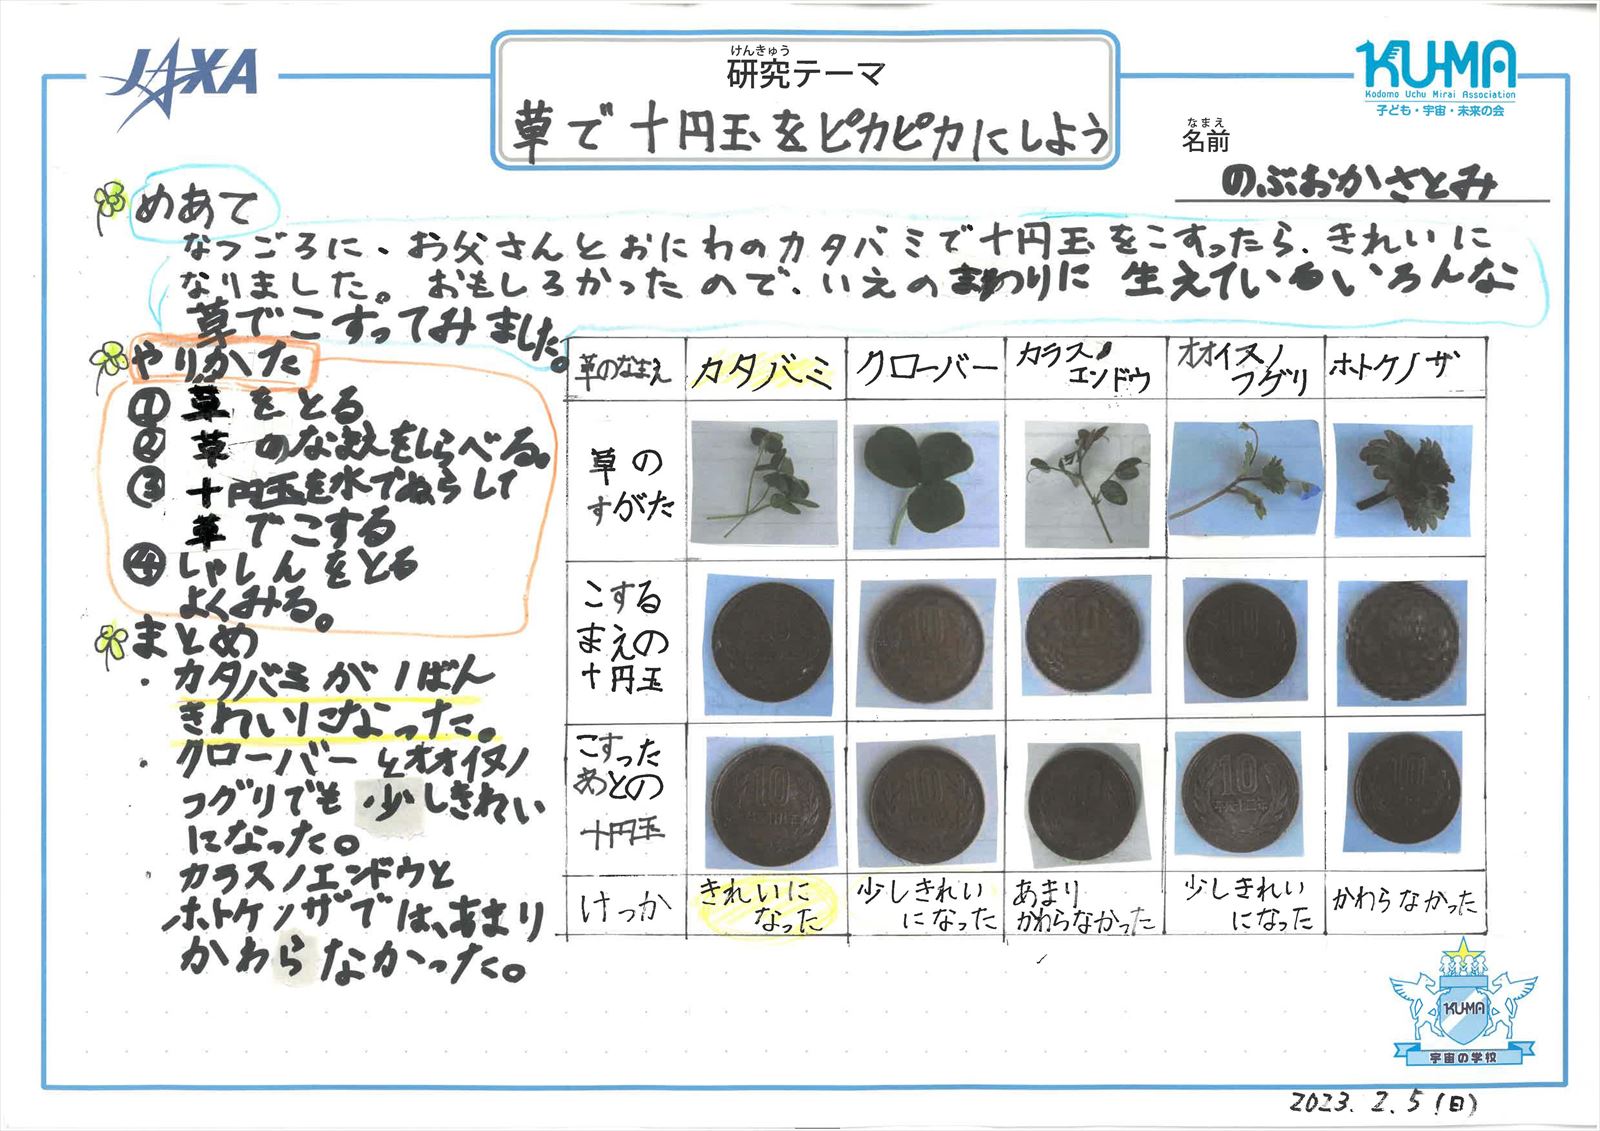 JAXA
けんきゅう
研究テーマ
草で十円玉をピカピカにしよう
KUMA
Kodomo Uchu Mirai Association
子ども・宇宙・未来の会
なまえ
名前
のぶおかさとみ
めあて
なつごろに、お父さんとおにわのカタバミで十円玉をこすったら、きれいに
なりました。おもしろかったので、いえのまわりに生えているいろんな
草でこすってみました。
やりかた
① 草をとる
② 草のなまえをしらべる。
③ 十円玉を水でぬらして
草でこする
④ しゃしんをとる
よくみる。
まとめ
・カタバミが1ばん
きれいになった。
・クローバーとオオイヌノ
フグリでも少しきれい
になった。
・カラスノエンドウと
ホトケノザでは、あまり
かわらなかった。
草のなまえ
カタバミ
クローバー
カラスノ
エンドウ
オオイヌノ
フグリ
ホトケノザ
草の
すがた
こする
まえの
十円玉
こすった
あとの
十円玉
けっか
きれいに
なった
少しきれい
になった
あまり
かわらなかった
少しきれい
になった
かわらなかった
KUMA
宇宙の学校
2023.2.5(日)